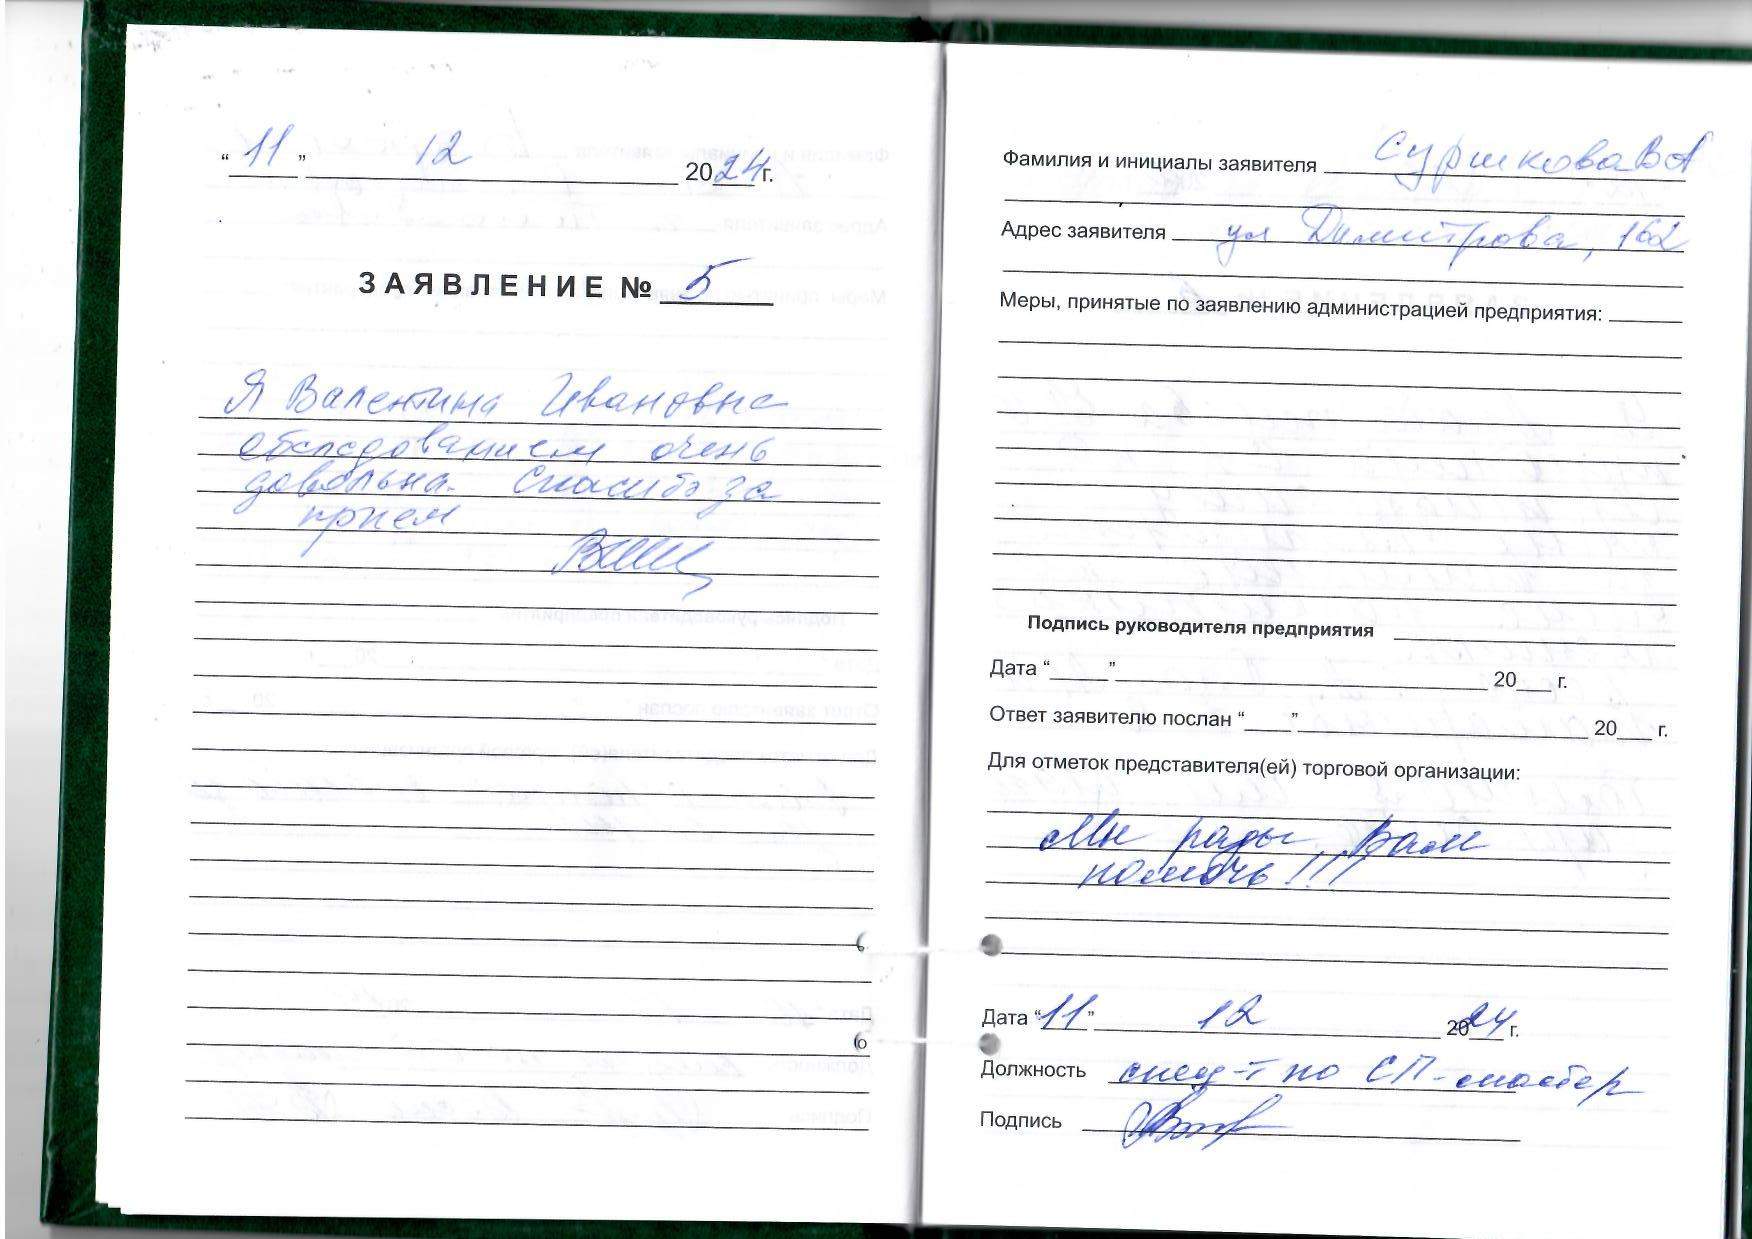 “11” 12 2024 г.
ЗАЯВЛЕНИЕ № 5
Я Валентина Ивановна
обследованием очень
довольна. Спасибо за
прием
Фамилия и инициалы заявителя Суршкова В А
Адрес заявителя ул Димитрова, 162
Меры, принятые по заявлению администрацией предприятия:
Подпись руководителя предприятия
Дата “ ” 20 г.
Ответ заявителю послан “ ” 20 г.
Для отметок представителя(ей) торговой организации:
Мы рады Вам
помочь!!!
Дата “11” 12 2024 г.
Должность спец-т по СП-мастер
Подпись